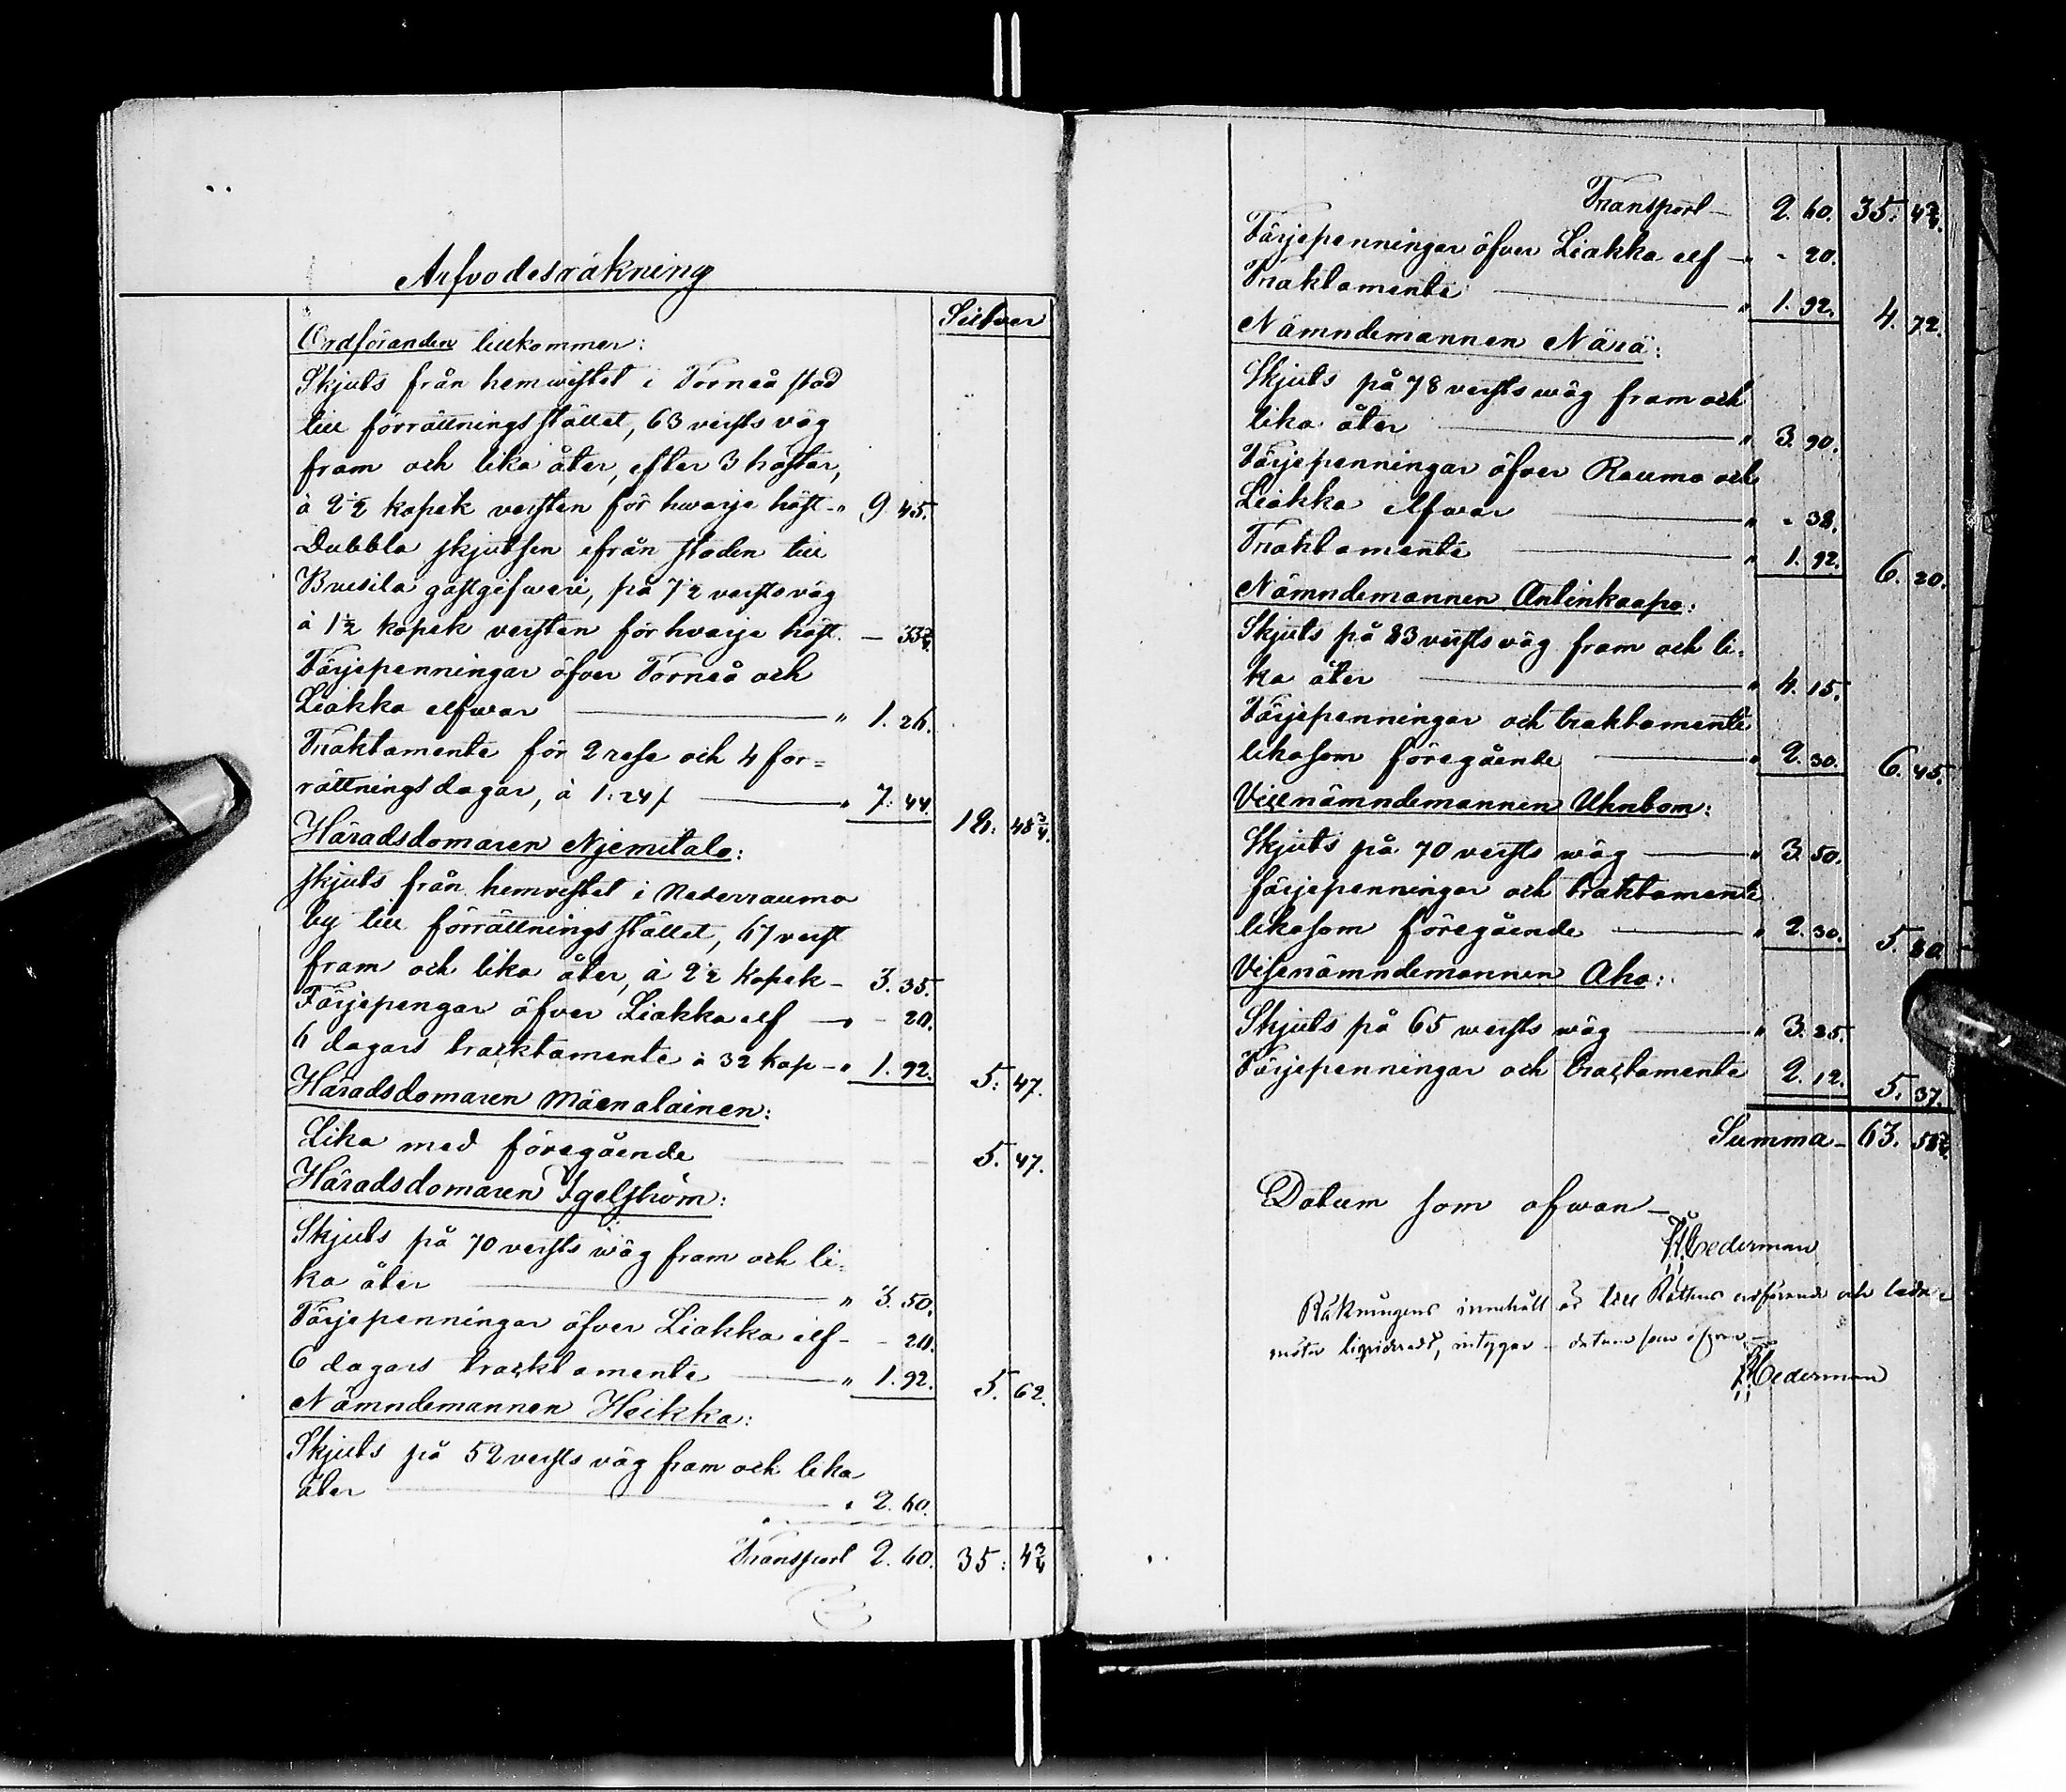 Arfvodesräkning
Silfver
Ordföranden tillkommer:
Skjuts från hemvistet i Torneå stad
till förrättningsstället, 63 versts väg
fram och lika åter, efter 3 hästar,
à 2½ kopek versten för hwarje häst-" 9 45.
Dubbla skjutsen ifrån staden till
Bwesila gästgifweri, på 7½ versts väg
à 1½ kopek versten för hvarje häst. — 33¾
Färjepenningar öfver Torneå och
Liakka elfwar — " 1. 26.
Traktamente för 2 rese och 4 för=
rättningsdagar, à 1:24/. — " 7. 44. 18. 48¾.
Häradsdomaren Njemitalo:
skjuts från hemvistet i Nederrauma
by till förrättningsstället, 67 verst
fram och lika åter, à 2½ kopek – 3. 35.
Färjepengar öfver Liakka elf — " - 20.
6 dagars tracktamente à 32 kop –" 1. 92. 5. 47.
Häradsdomaren Mäenalainen:
Lika med föregående — 5. 47.
Häradsdomaren Igelström:
Skjuts på 70 versts wäg fram och li=
ka åter — " 3. 50.
Färjepenningar öfver Liakka elf - - 20.
6 dagars tracktamente — " 1. 92. 5. 62.
Nämndemannen Heikka:
Skjuts på 52 versts väg fram och lika
åter — " 2. 60.
Transport 2. 60. 35: 4¾
Transport – 2. 60. 35. 4¾.
Färjepenningar öfver Liakka elf — " - 20.
Traktamente — " 1. 92. 4. 72.
Nämndemannen Närä:
Skjuts på 78 versts wäg fram och
lika åter — " 3. 90.
Färjepenningar öfver Rauma och
Liakka elfwar — " - 38.
Traktamente — " 1. 92. 6. 20.
Nämndemannen Anlinkaapo:
Skjuts på 83 versts väg fram och li=
ka åter — " 4. 15.
Färjepenningar och traktamente
likasom föregående — " 2. 30. 6. 45.
Vicenämndemannen Uhnbom:
Skjuts på 70 versts wäg — " 3. 50.
färjepenningar och traktamente
likasom föregående — " 2. 30. 5. 80
Vicenämndemannen Aho:
Skjuts på 65 wersts wäg — " 3. 25.
Färjepenningar och tractamente 2. 12. 5. 37.
Summa – 63. 58¾.
Datum som ofwan –
Cederman
Räkningens innehåll är till Rättens ordförande och ledamöter
liqvideradt, intygar – datum som ofvan –
Cederman